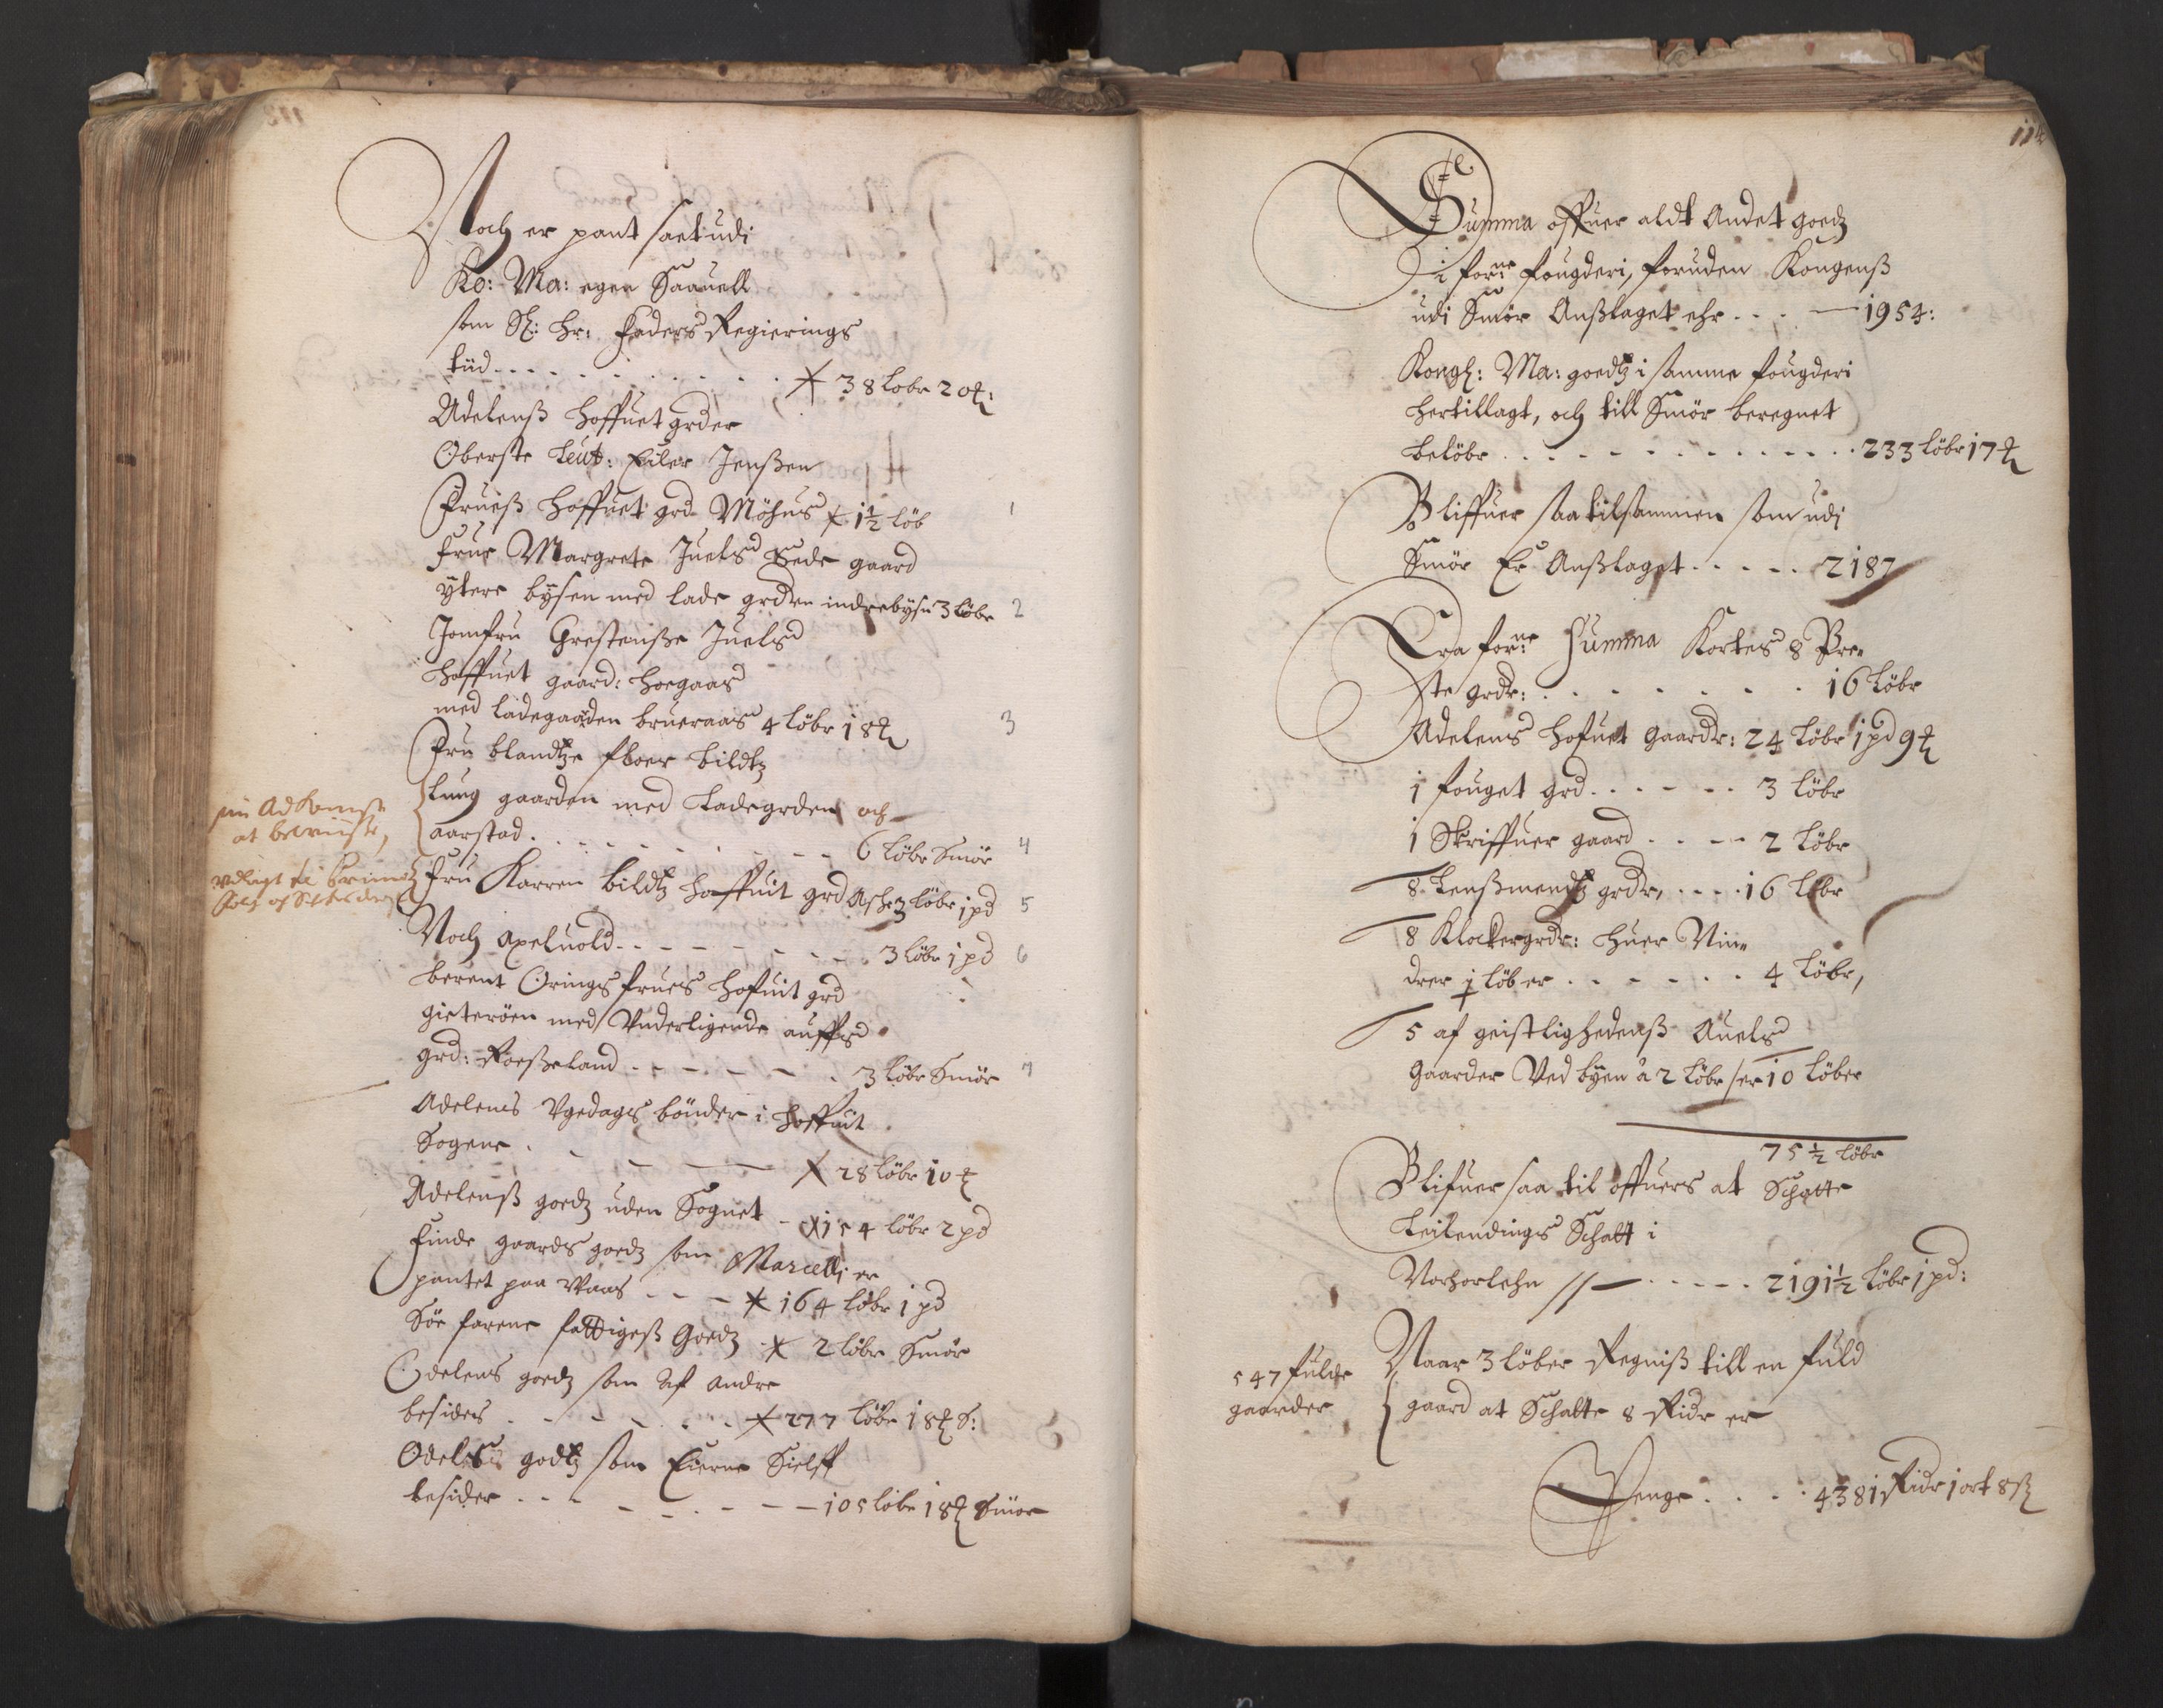 Noch er pant saet udi
Ko: Ma: egen
som Sl: Hr: Faders Regierings
tiid . . . . . . . 38 löbr 20 ℔:
Adelenß hoffuet grder
Oberste Leut: Eiler Jenßen
Frueß hoffuet grd Möhus 1½ löb
1
Frue Margrete Juels Sede gaard
ytere bysen med lade grden indrebysn 3 löbr
2
Jomfru Grestenße Juels
hoffuet gaard: hoegaas
med ladegaarden brueraas 4 löbr 18 ℔
3
Fru blandtze bildtz
Lung gaarden med Ladegrden och
aarstad . . . . . . 6 löbr Smör
4
sin Adkomst
at beviise,
Fru Karren bildtz hoffuit grd Ask 3 löbr 1 pd
5
Noch Apeluold . . . . . 3 löbr 1 pd
6
berent Orings frues hofuit grd
gieteröen med Underligende
grd: Roeßeland . . . . . 3 löbr Smör
7
Adelens Ugedags bönder i hoffuit
Sogene . . . . 28 löbr 10 ℔
Adelenß goedz uden Sognet 154 löbr 2 pd
Finde gaards goedz som Marcelli er
pantet paa Waas . . . 164 löbr 1 pd
Söe farene fattigeß Goedz 2 löbr Smör
Odelens goedz som af andre
besides . . . . . . 277 löbr 18 ℔ S:
Odels godtz som Eierne Sielff
besider . . . . . . 105 löbr 18 ℔ Smör
114
Summa offuer aldt Andet goedz
i forne fougderi, foruden Kongenß
udi Smör Anßlaget ehr . . . 1954:
Kongl: Ma: goedtz i samme fougderi
hertillagt, och till Smör beregnet
belöbr . . . . . . . . 233 löbr 17 ℔
Bliffuer saa tilsammen som udj
Smör Er Anßlaget . . . . . 2187
Fra forne Summa Kortes 8 Pre-
ste grdr: . . . . . . . 16 löbr
Adelens hofuet Gaardr: 24 löbr 1 pd 9 ℔
1 fouget grd . . . . . . 3 löbr
1 Skriffuer gaard . . . . 2 löbr
8 Lenßmendtz grdr, . . . . 16 löbr
8 Klockergrdr: huer Vin-
drer ½ löb er . . . . . . 4 löbr,
5 af geistlighedenß Auels
Gaarder Ved byen à 2 löbr er 10 löber
75½ löbr
Blifuer saa til offuers at Schatte
Leilendings Schatt i
Norhorlehn . . . . . 2191½ löbr 1 pd:
547 fulde
gaarder
Naar 3 löber Regniß till en fuld
gaard at Schatte 8 Ridr er
Penge . . . . 4381 Ridr 1 ort 8 ß